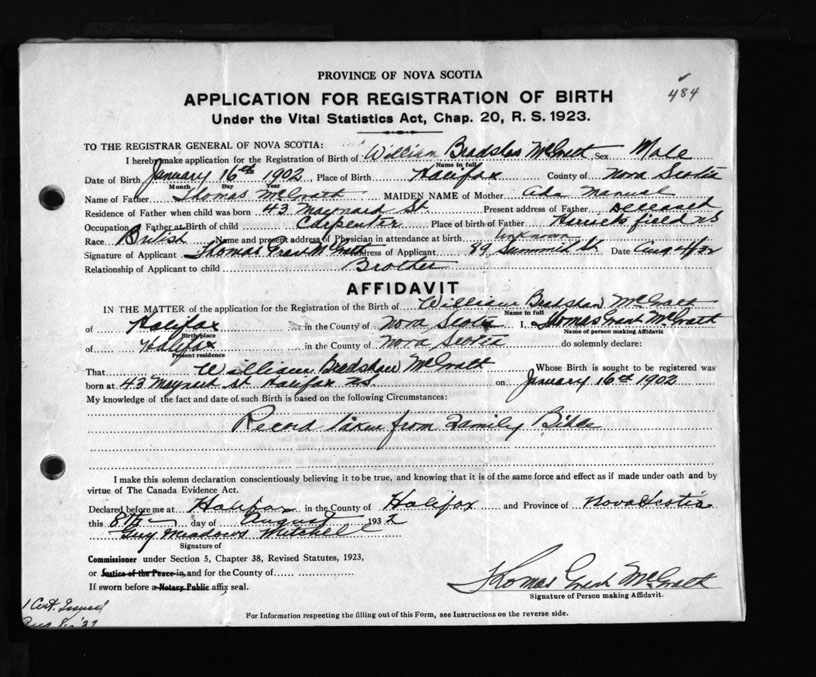 484
PROVINCE OF NOVA SCOTIA
APPLICATION FOR REGISTRATION OF BIRTH
Under the Vital Statistics Act, Chap. 20, R. S. 1923.
TO THE REGISTRAR GENERAL OF NOVA SCOTIA:
I hereby make application for the Registration of Birth of William Bradshaw McGrath Sex Male
Name in full
Date of Birth January 16th 1902 Place of Birth Halifax County of Nova Scotia
Month Day Year
Name of Father Thomas McGrath MAIDEN NAME of Mother Ada Manual
Residence of Father when child was born 43 Maynard St. Present address of Father Deceased
Occupation of Father at Birth of child Carpenter Place of birth of Father Harrietsfield NS
Race British Name and present address of Physician in attendance at birth unknown
Signature of Applicant Thomas Grant McGrath Address of Applicant 89 Summit St. Date Aug
Relationship of Applicant to child Brother
AFFIDAVIT
IN THE MATTER of the application for Registration of the Birth of William Bradshaw McGrath
Name in full
of Halifax in the County of Nova Scotia I, Thomas Grant McGrath
Birth place Name of person making Affidavit
of Halifax in the County of Nova Scotia do solemnly declare:
Present residence
That William Bradshaw McGrath Whose Birth is sought to be registered was
born at 43 Maynard St Halifax NS on January 16th 1902
My knowledge of the fact and date of such Birth is based on the following Circumstances:
Record taken from Family Bible
I make this solemn declaration conscientiously believing it to be true, and knowing that it is of the same force and effect as if made under oath and by
virtue of The Canada Evidence Act.
Declared before me at Halifax in the County of Halifax and Province of Nova Scotia
this 8th day of August 1932
Guy Meadows Mitchell
Signature of
Commissioner under Section 5, Chapter 38, Revised Statutes, 1923,
or Justice of the Peace in, and for the County of
If sworn before a Notary Public affix seal.
Thomas Grant McGrath
Signature of Person making Affidavit.
1 Cert. Issued
Aug 8/32
For Information respecting the filling out of this Form, see Instructions on the reverse side.